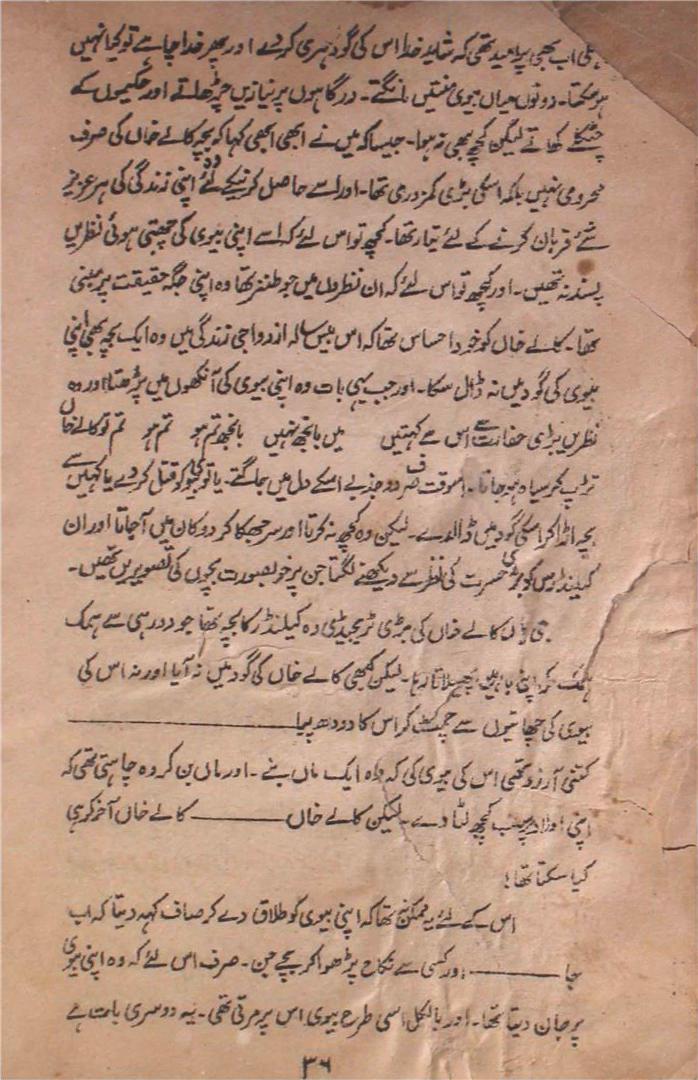 اب بھی پر امید تھی کہ شاید خدا اس کی گود ہری کر دے اور پھر خدا چاہے تو کیا نہیں
ہو سکتا۔ دونوں میاں بیوی منتیں مانگتے۔ درگاہوں پر نیازیں چڑھاتے اور حکیموں کے
چٹکلے کھاتے لیکن کچھ بھی نہ ہوا۔ جیسا کہ میں نے ابھی ابھی کہا کہ بچہ کالے خاں کی صرف
محرومی نہیں بلکہ اسکی بڑی کمزوری تھا۔ اور اسے حاصل کرنیکے لئے وہ اپنی زندگی کی ہر عزیز
شئے قربان کرنے کے لئے تیار تھا۔ کچھ تو اس لئے کہ اسے اپنی بیوی کی چبھتی ہوئی نظریں
پسند نہ تھیں۔ اور کچھ تو اس لئے کہ ان نظروں میں جو طنز تھا وہ اپنی جگہ حقیقت پر مبنی
تھا۔ کالے خاں کو خود احساس تھا کہ اس بیس سالہ ازدواجی زندگی میں وہ ایک بچہ بھی اپنی
بیوی کی گود میں نہ ڈال سکا۔ اور جب یہی بات وہ اپنی بیوی کی آنکھوں میں پڑھتا اور وہ
نظریں بڑی حقارت سے اس سے کہتیں میں بانجھ نہیں بانجھ تم ہو تم ہو تم تو کالے خاں
تڑپ کر سیاہ ہو جاتا۔ اسوقت صرف دو جذبے اسکے دل میں جاگتے۔ یا تو بیوی کو قتل کر دے یا کہیں سے
بچہ اڑا کر اسکی گود میں ڈالدے۔ لیکن وہ کچھ نہ کرتا اور سر جھکا کر دوکان میں آ جاتا اور ان
کیلنڈروں کو بڑی حسرت کی نظر سے دیکھنے لگتا جن پر خوبصورت بچوں کی تصویریں تھیں۔
جی ہاں کالے خاں کی بڑی ٹریجیڈی وہ کیلنڈر کا بچہ تھا جو دور ہی سے ہمک
ہمک کر اپنی باہیں پھیلاتا رہا۔ لیکن کبھی کالے خاں کی گود میں نہ آیا اور نہ اس کی
بیوی کی چھاتیوں سے چمٹ کر اس کا دودھ پیا ————
کتنی آرزو تھی اس کی بیوی کی کہ وہ ایک ماں بنے۔ اور ماں بن کر وہ چاہتی تھی کہ
اپنی اولاد پر سب کچھ لٹا دے۔ لیکن کالے خاں ———— کالے خاں آخر کر ہی
کیا سکتا تھا!
اس کے لئے یہ ممکن تھا کہ اپنی بیوی کو طلاق دے کر صاف کہہ دیتا کہ اب
جا ———— اور کسی سے نکاح پڑھوا کر بچے جن۔ صرف اس لئے کہ وہ اپنی بیوی
پر جان دیتا تھا۔ اور بالکل اسی طرح بیوی اس پر مرتی تھی۔ یہ دوسری بات ہے
۳۶